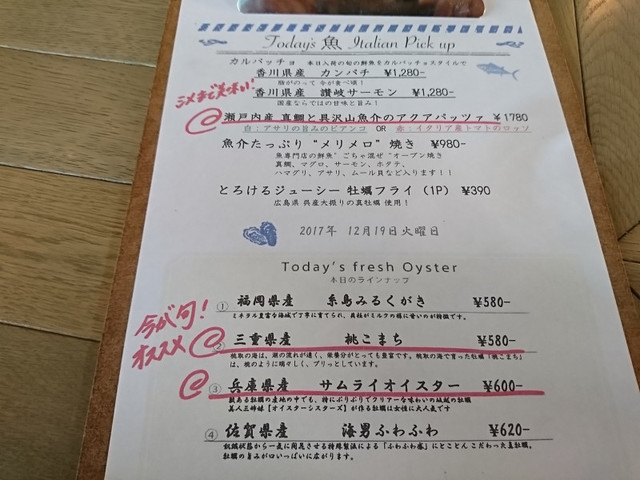 Today's 魚 Italian Pick up
カルパッチョ 本日入荷の旬の鮮魚をカルパッチョスタイルで
香川県産 カンパチ ¥1,280-
脂がのって今が食べ頃!
香川県産 讃岐サーモン ¥1,280-
国産ならではの甘味と旨み!
シメまで美味い!
瀬戸内産 真鯛と具沢山魚介のアクアパッツァ ¥1780
白:アサリの旨みのビアンコ OR 赤:イタリア産トマトのロッソ
魚介たっぷり "メリメロ" 焼き ¥980-
魚専門店の鮮魚"ごちゃ混ぜ"オーブン焼き
真鯛、マグロ、サーモン、ホタテ、
ハマグリ、アサリ、ムール貝など入ります!!
とろけるジューシー 牡蠣フライ (1P) ¥390
広島県 呉産大振りの真牡蠣 使用!
2017年 12月19日火曜日
Today's fresh Oyster
本日のラインナップ
① 福岡県産 糸島みるくがき ¥580-
ミネラル豊富な海域で丁寧に育てられ、貝柱がミルクの様に甘いのが特徴です。
今が旬!
オススメ
② 三重県産 桃こまち ¥580-
桃取の海は、潮の流れが速く、栄養分がとっても豊富です。桃取の海で育った牡蠣「桃こまち」
は、桃のように瑞々しく、プリっとしています。
③ 兵庫県産 サムライオイスター ¥600-
数ある牡蠣の産地の中でも、特にぷりぷりでクリアーな味わいの坂越の牡蠣
美人三姉妹【オイスターシスターズ】が作る牡蠣は女性に大人気です
④ 佐賀県産 海男ふわふわ ¥620-
飢餓状態から一気に開花させる特殊製法による「ふわふわ感」にとことんこだわった真牡蠣。
牡蠣の旨みが口いっぱいに広がります。